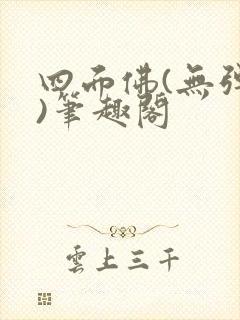 四面佛(無彈
)筆趣閣
雲上三千